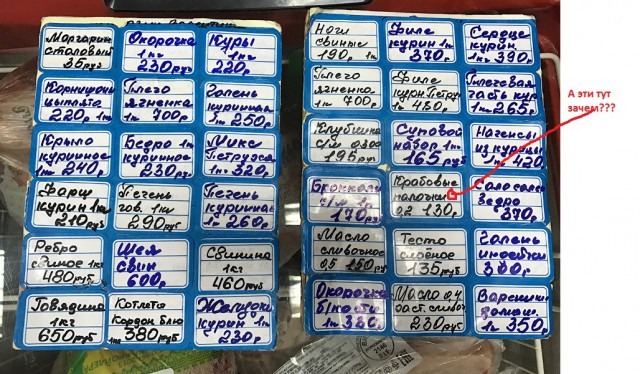 Маргарин
столовый
35руб
Окорочка
1кг
230руб
Куры
1кг
220р
Корнишоны
цыплята
220р 1кг
Плечо
ягненка
1кг 700р
Голень
куринная
1кг 250р
Крыло
куринное
1кг 240р
Бедро 1кг
куринное
230руб
Микс
Петруха
1кг 320р
Фарш
курин 1кг
210руб
Печень
гов. 1кг
290руб
Печень
куринная
1кг 260р
Ребро
свиное 1кг
480руб
Шея
свин
600р
Свинина
1кг
460руб
Говядина
1кг
650руб
Котлета
Кордон Блю
1кг 380руб
Желудки
курин 1кг
230р
Ноги
свиные
190р 1кг
Филе
курин 1кг
370р
Сердце
курин
1кг 390р
Плечо
ягненка
1кг 700р
Филе
курн Петрух
1кг 480р
Плечевая
часть кур
1кг 265р
Клубника
с/м 0,300
195руб
Суповой
набор 1кг
165руб
Нагенсы
из курицы
1кг 420
Брокколи
с/м 1кг
170руб
Крабовые
палочки
0,2 130р
Сало солен
Ведро
370р
Масло
сливочное
0,5 150руб
Тесто
слоёное
135руб
Голень
индейки
300р
Окорочка
1кг 380р
Масло 0,4
230руб
Вареники
домаш.
1кг 350р
А эти тут
зачем???